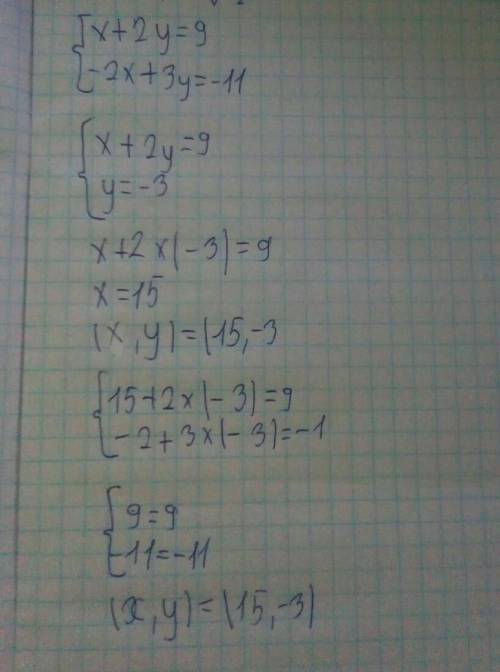 x+2y=9
-2x+3y=-11
x+2y=9
y=-3
x+2x(-3)=9
x=15
(x,y)=(15,-3
15+2x(-3)=9
-2+3x(-3)=-1
9=9
-11=-11
(x,y)=(15,-3)